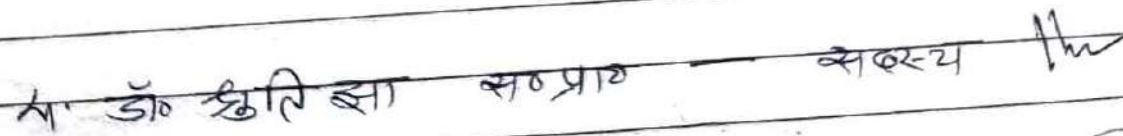 ५. डॉ० श्रुति झा स०प्रा० — सदस्य